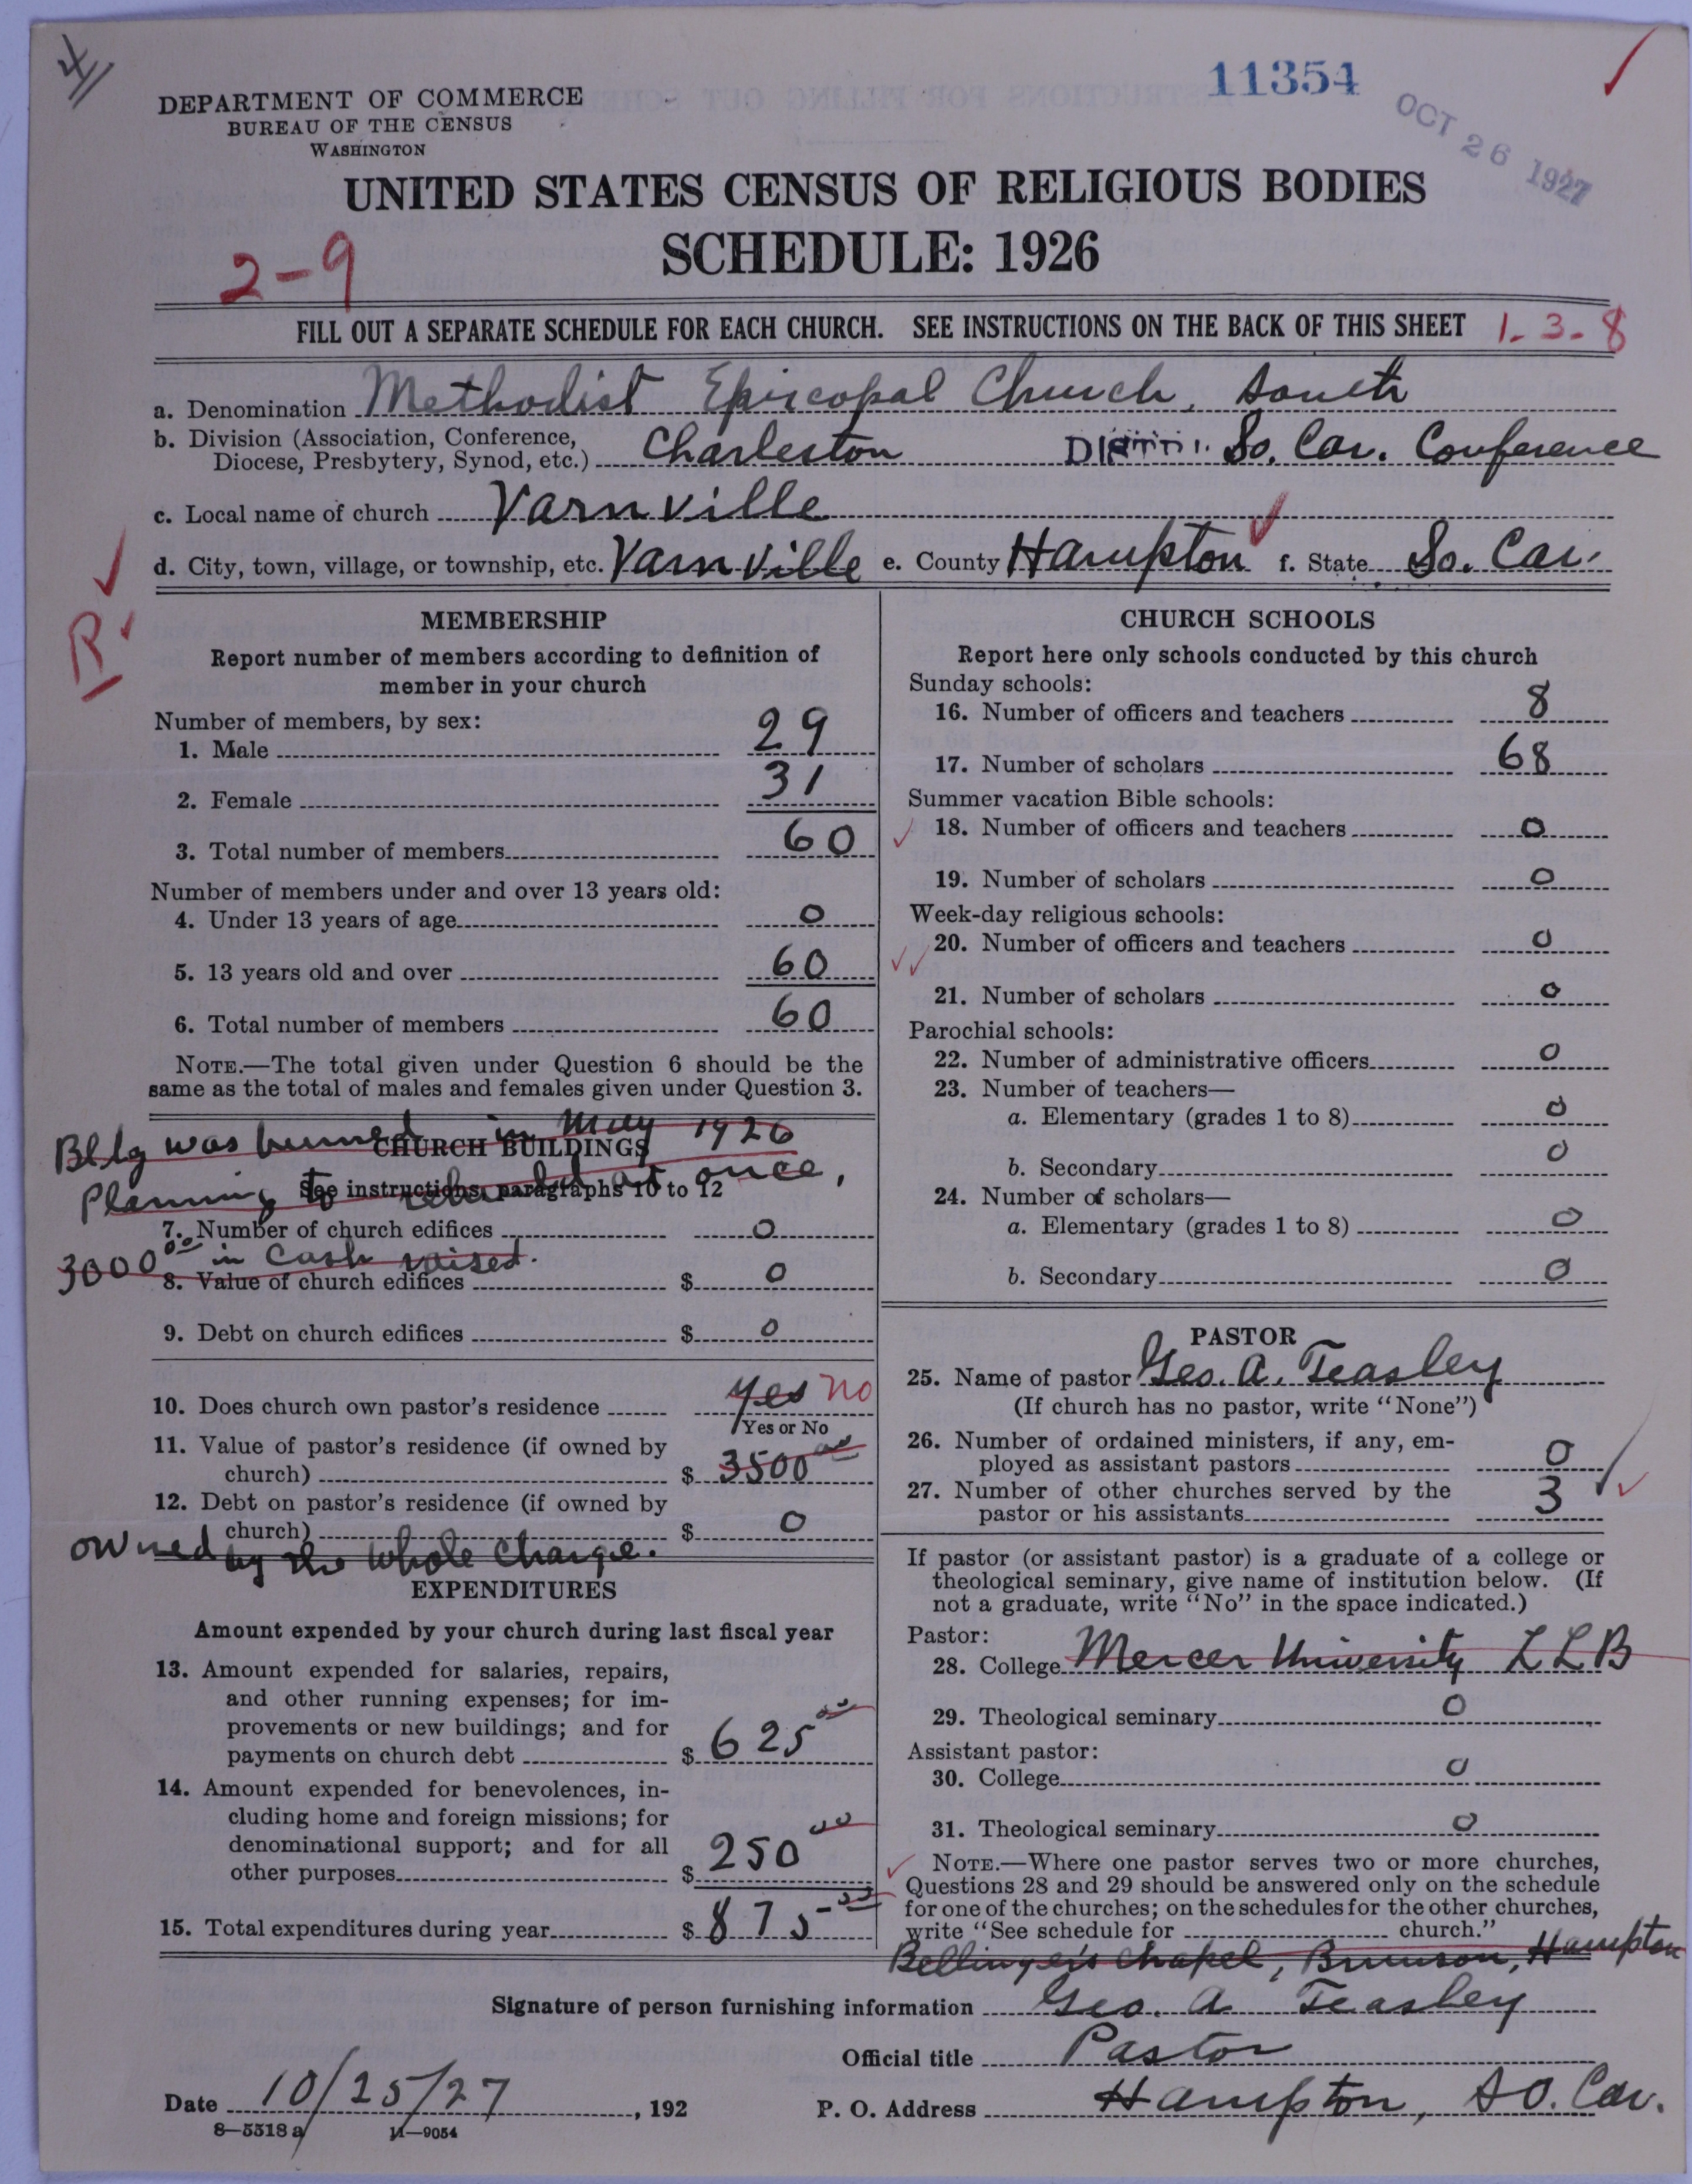 11354
OCT 26 1927
DEPARTMENT OF COMMERCE
BUREAU OF THE CENSUS
WASHINGTON
UNITED STATES CENSUS OF RELIGIOUS BODIES
SCHEDULE: 1926
2-9
FILL OUT A SEPARATE SCHEDULE FOR EACH CHURCH. SEE INSTRUCTIONS ON THE BACK OF THIS SHEET 1-3-8
a. Denomination Methodist Episcopal Church, South
b. Division (Association, Conference,
Diocese, Presbytery, Synod, etc.) Charleston So. Car. Conference
c. Local name of church Varnville
d. City, town, village, or township, etc. Varnville e. County Hampton f. State So. Car.
R
MEMBERSHIP
Report number of members according to definition of
member in your church
Number of members, by sex:
1. Male 29
2. Female 31
3. Total number of members 60
Number of members under and over 13 years old:
4. Under 13 years of age 0
5. 13 years old and over 60
6. Total number of members 60
NOTE.—The total given under Question 6 should be the
same as the total of males and females given under Question 3.
Bldg was burned in May 1926
CHURCH BUILDINGS
Planning to rebuild at once,
See instructions, paragraphs 10 to 12
7. Number of church edifices 0
3000 00 in cash raised.
8. Value of church edifices $ 0
9. Debt on church edifices $ 0
10. Does church own pastor's residence yes no
Yes or No
11. Value of pastor's residence (if owned by
church) $ 3500 00
12. Debt on pastor's residence (if owned by
church) $ 0
owned by the whole charge.
EXPENDITURES
Amount expended by your church during last fiscal year
13. Amount expended for salaries, repairs,
and other running expenses; for im-
provements or new buildings; and for
payments on church debt $ 625 00
14. Amount expended for benevolences, in-
cluding home and foreign missions; for
denominational support; and for all
other purposes $ 250 00
15. Total expenditures during year $ 875 00
CHURCH SCHOOLS
Report here only schools conducted by this church
Sunday schools:
16. Number of officers and teachers 8
17. Number of scholars 68
Summer vacation Bible schools:
18. Number of officers and teachers 0
19. Number of scholars 0
Week-day religious schools:
20. Number of officers and teachers 0
21. Number of scholars 0
Parochial schools:
22. Number of administrative officers 0
23. Number of teachers—
a. Elementary (grades 1 to 8) 0
b. Secondary 0
24. Number of scholars—
a. Elementary (grades 1 to 8) 0
b. Secondary 0
PASTOR
25. Name of pastor Geo. A. Teasley
(If church has no pastor, write "None")
26. Number of ordained ministers, if any, em-
ployed as assistant pastors 0
27. Number of other churches served by the
pastor or his assistants 3
If pastor (or assistant pastor) is a graduate of a college or
theological seminary, give name of institution below. (If
not a graduate, write "No" in the space indicated.)
Pastor:
28. College Mercer University LLB
29. Theological seminary 0
Assistant pastor:
30. College 0
31. Theological seminary 0
NOTE.—Where one pastor serves two or more churches,
Questions 28 and 29 should be answered only on the schedule
for one of the churches; on the schedules for the other churches,
write "See schedule for church."
Bellinger's Chapel, Brunson, Hampton
Signature of person furnishing information Geo. A Teasley
Official title Pastor
Date 10/25/27, 192 P. O. Address Hampton, So. Car.
8—5518 a 11—9054